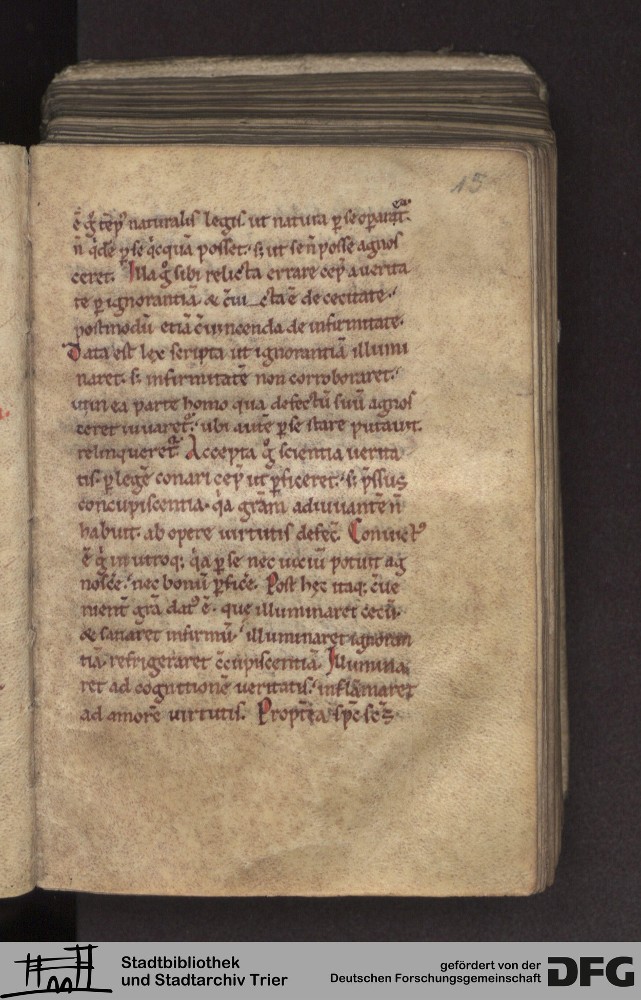 15
ē g̊ tēp᷒ naturalis legis ut natura ꝑ se oꝑaret̄.
n̄ q̇dē ꝑ se q̇cquā posset. s; ut se n̄ posse agnos
ceret. Illa g̊ sibi relicta errare cep̄ a uerita
te ꝑ ignorantiā. & c̄ui cta ē de cecitate.
postmodū etiā c̄uincenda de infirmitate.
Data est lex scripta ut ignorantiā illumi
naret. s; infirmitatē non corroboraret.
ut in ea parte homo qua defectū suū agnos
ceret iuuaret᷒. ubi autē ꝑ se stare putauit.
relinqueret᷒. Accepta g̊ scientia uerita
tis. ꝑ legē conari cep̄ ut ꝑficeret. s; p̄ssus
concupiscentia. q̇a grām adiuuantē n̄
habuit. ab opere uirtutis defec̄. Conuict᷒
ē g̊ in utroq;. q̇a ꝑ se nec uiciū potuit ag
nosc̄e. nec bonū ꝑfic̄e. Post hęc itaq; c̄ue
nient̄ grā dat᷒ ē. que illuminaret cecū.
& sanaret infirmū. illuminaret ignoran
tiā. refrigeraret c̄cupiscentiā. Illumina
ret ad cognitionē ueritatis. inflāmaret
ad amorē uirtutis. Propt̄ea sp̄c se᷒s
Stadtbibliothek
und Stadtarchiv Trier
gefördert von der
Deutschen Forschungsgemeinschaft
DFG